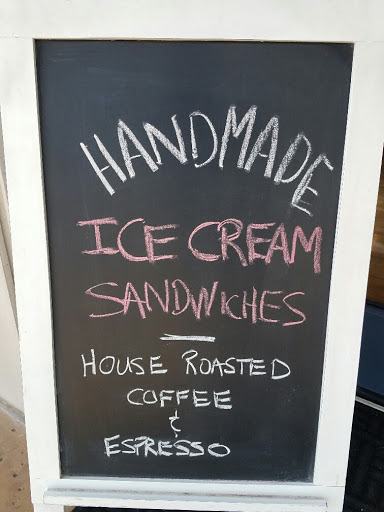 HANDMADE
ICE CREAM
SANDWICHES
HOUSE ROASTED
COFFEE
&
ESPRESSO